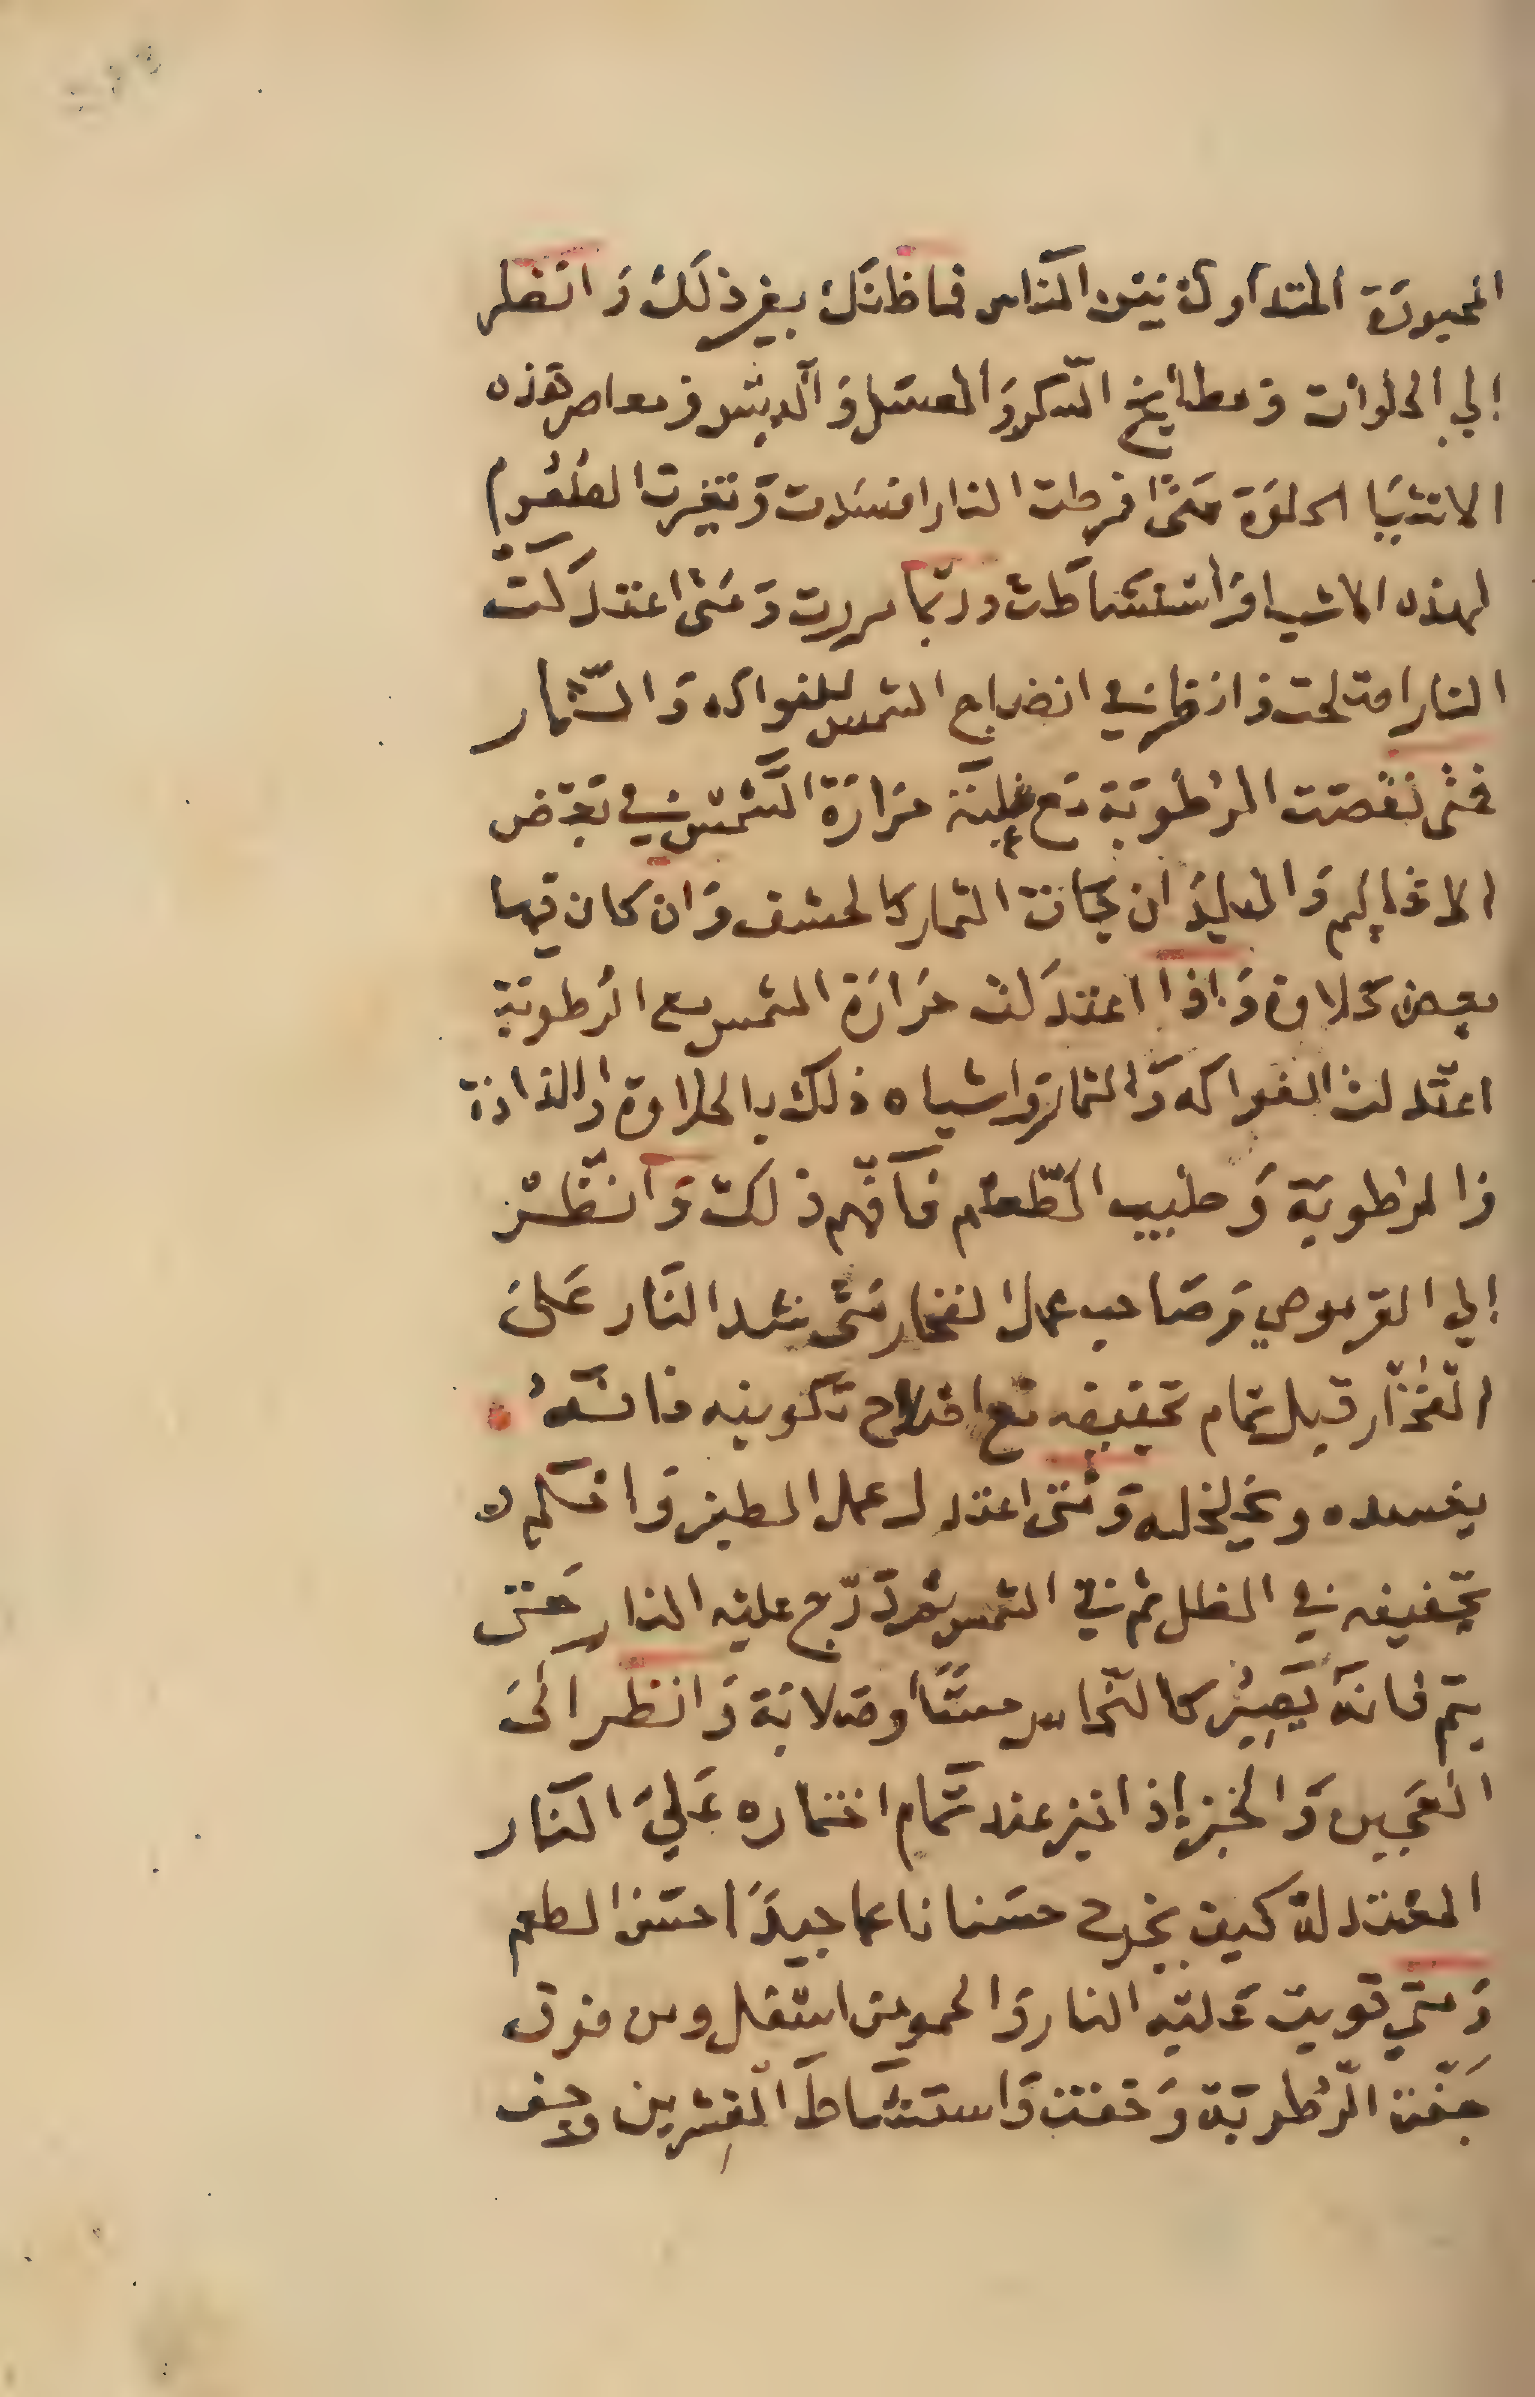 المتداولة بين الناس فما ظنك بغير ذلك وانظر
الي الحلوات ومطابخ السكر والعسل والدبس ومعاصر هذه
الاشيا الحلوة متي افرطت النار افسدت وتغيرت الطعوم
لهذه الاشيا واستشاطت وربما مررت ومتي اعتدلت
النار اصلحت وانظر في انضاج الشمس للفواكه والثمار
فمتي نقصت الرطوبة مع غلبة حرارة الشمس في بعض
الاقاليم والبلدان كانت الثمار كالحشف وان كان فيها
بعض حلاوة واذا اعتدلت حرارة الشمس مع الرطوبة
اعتدلت الفواكه والثمار واشباه ذلك بالحلاوة واللذاذة
والرطوبة وطيب الطعام فافهم ذلك وانظر
الي وصاحب عمل الفخار متي شد النار علي
الفخار قبل تمام تجفيفه مع اصلاح تكوينه فانه
يفسده ويخلخله ومتي اعتدل عمل الطين واحكم
تجفيفه في الظل ثم في الشمس ثم درج عليه النار حتي
يتم فانه يصير كالنحاس حسنا وصلابة وانظر الي
العجين والخبز اذا خبز عند تمام اختماره علي النار
المعتدلة كيف يخرج حسنا ناعما جيدا حسن الطعم
ومتي قويت عليه النار والحمو من اسفل ومن فوق
جفت الرطوبة وخفت واستشاط القشرين